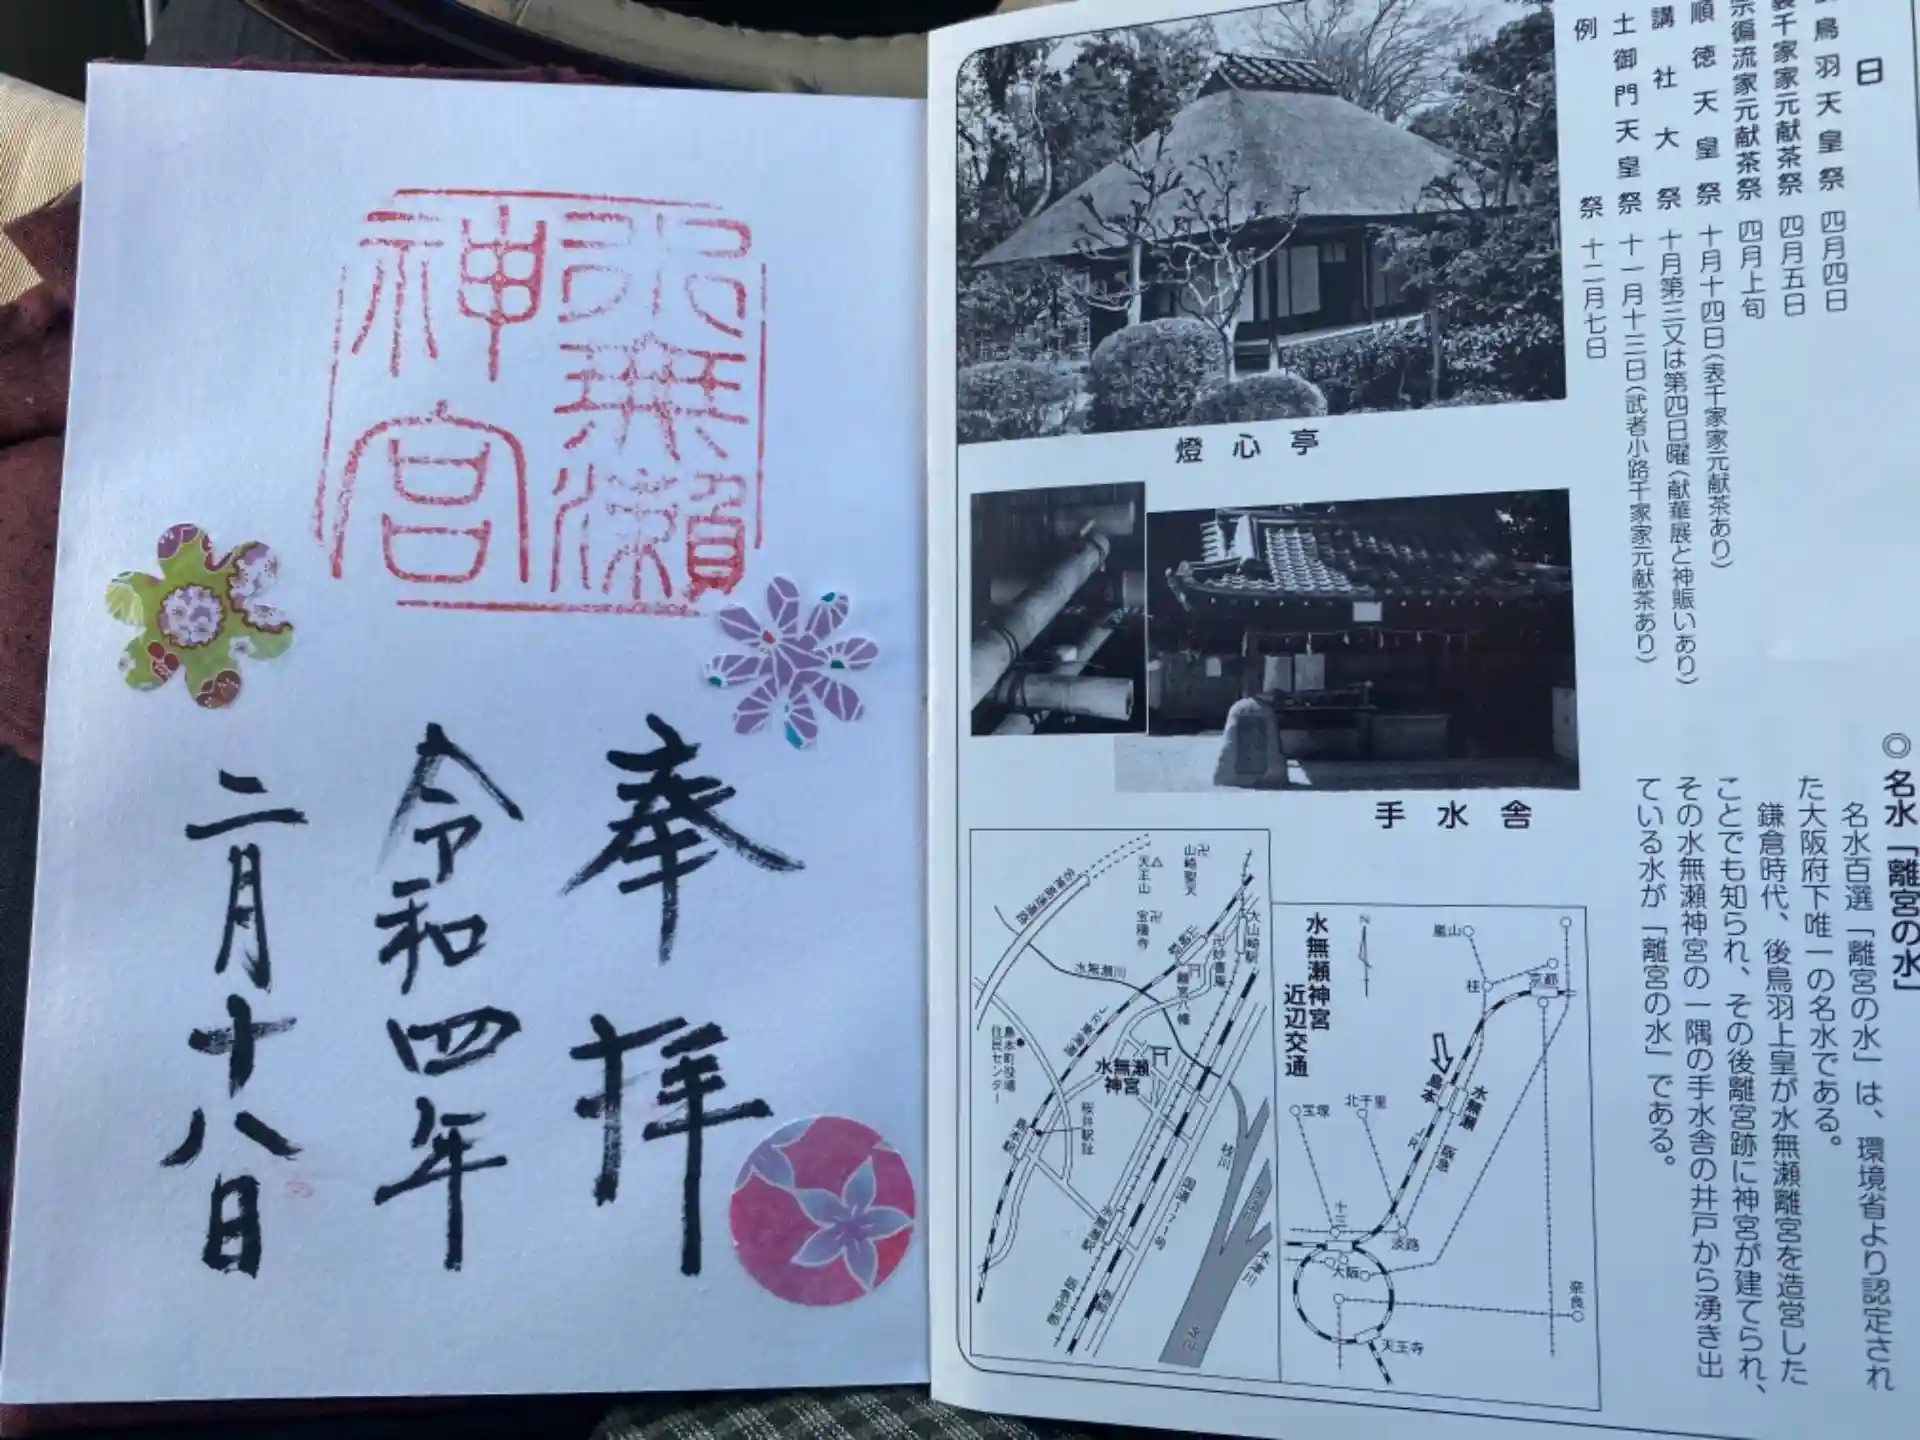 水無瀬
神宮
奉拝
令和四年
二月十八日
日
鳥羽天皇祭 四月四日
千家家元献茶祭 四月五日
流家元献茶祭 四月上旬
順徳天皇祭 十月十四日(表千家家元献茶あり)
講社大祭 十月第三又は第四日曜(献華展と神賑いあり)
土御門天皇祭 十一月十三日(武者小路千家家元献茶あり)
例祭 十二月七日
燈心亭
手水舎
◎名水「離宮の水」
名水百選「離宮の水」は、環境省より認定され
た大阪府下唯一の名水である。
鎌倉時代、後鳥羽上皇が水無瀬離宮を造営した
ことでも知られ、その後離宮跡に神宮が建てられ、
その水無瀬神宮の一隅の手水舎の井戸から湧き出
ている水が「離宮の水」である。
水無瀬神宮
近辺交通
N
嵐山
桂
京都
水無瀬
島本
阪急
JR
宝塚
北千里
十三
淡路
大阪
天王寺
奈良
山崎聖天
天王山
宝積寺
大山崎駅
妙喜庵
離宮八幡
水無瀬川
島本町役場
住民センター
水無瀬
神宮
桜井駅趾
桂川
国道171号
木津川